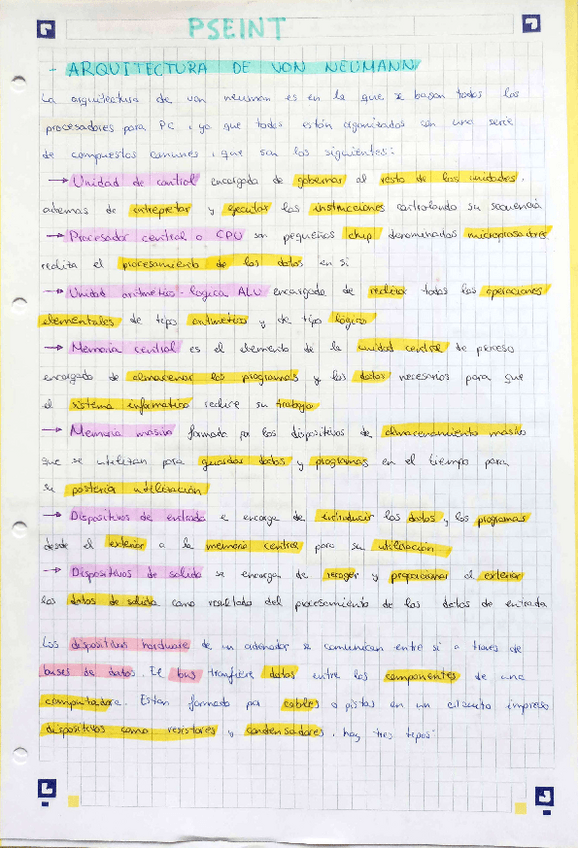 PSEINT
- ARQUITECTURA DE VON NEUMANN
La arquitectura de von neuman es en la que se basan todos los
procesadores para PC, ya que todos están organizados con una serie
de compuestos comunes, que son los siguientes:
→ Unidad de control encargada de gobernar al resto de las unidades,
ademas de interpretar y ejecutar las instrucciones controlando su secuencia
→ Procesador central o CPU son pequeños chip denominados
realiza el procesamiento de los datos en si
→ Unidad aritmetico-logica ALU encargada de realizar todas las operaciones
elementales de tipo aritmetico y de tipo logico
→ Memoria central es el elemento de la unidad central de proceso
encargado de almacenar los programas y los datos necesarios para que
el sistema informatico realice su trabajo
→ Memoria masiva formada por los dispositivos de almacenamiento masivo
que se utilizan para guardar datos y programas en el tiempo para
su posterior utilización
→ Dispositivos de entrada e encarga de introducir los datos y los programas
desde el exterior a la memoria central para su utilización
→ Dispositivos de salida se encarga de recoger y proporcionar al exterior
los datos de salida como resultado del procesamiento de los datos de entrada
Los dispositivos hardware de un ordenador se comunican entre si a traves de
buses de datos. El bus transfiere datos entre los componentes de una
computadora. Estan formado por cables o pistas en un circuito impreso
dispositivos como resistores y condensadores. hay tres tipos: